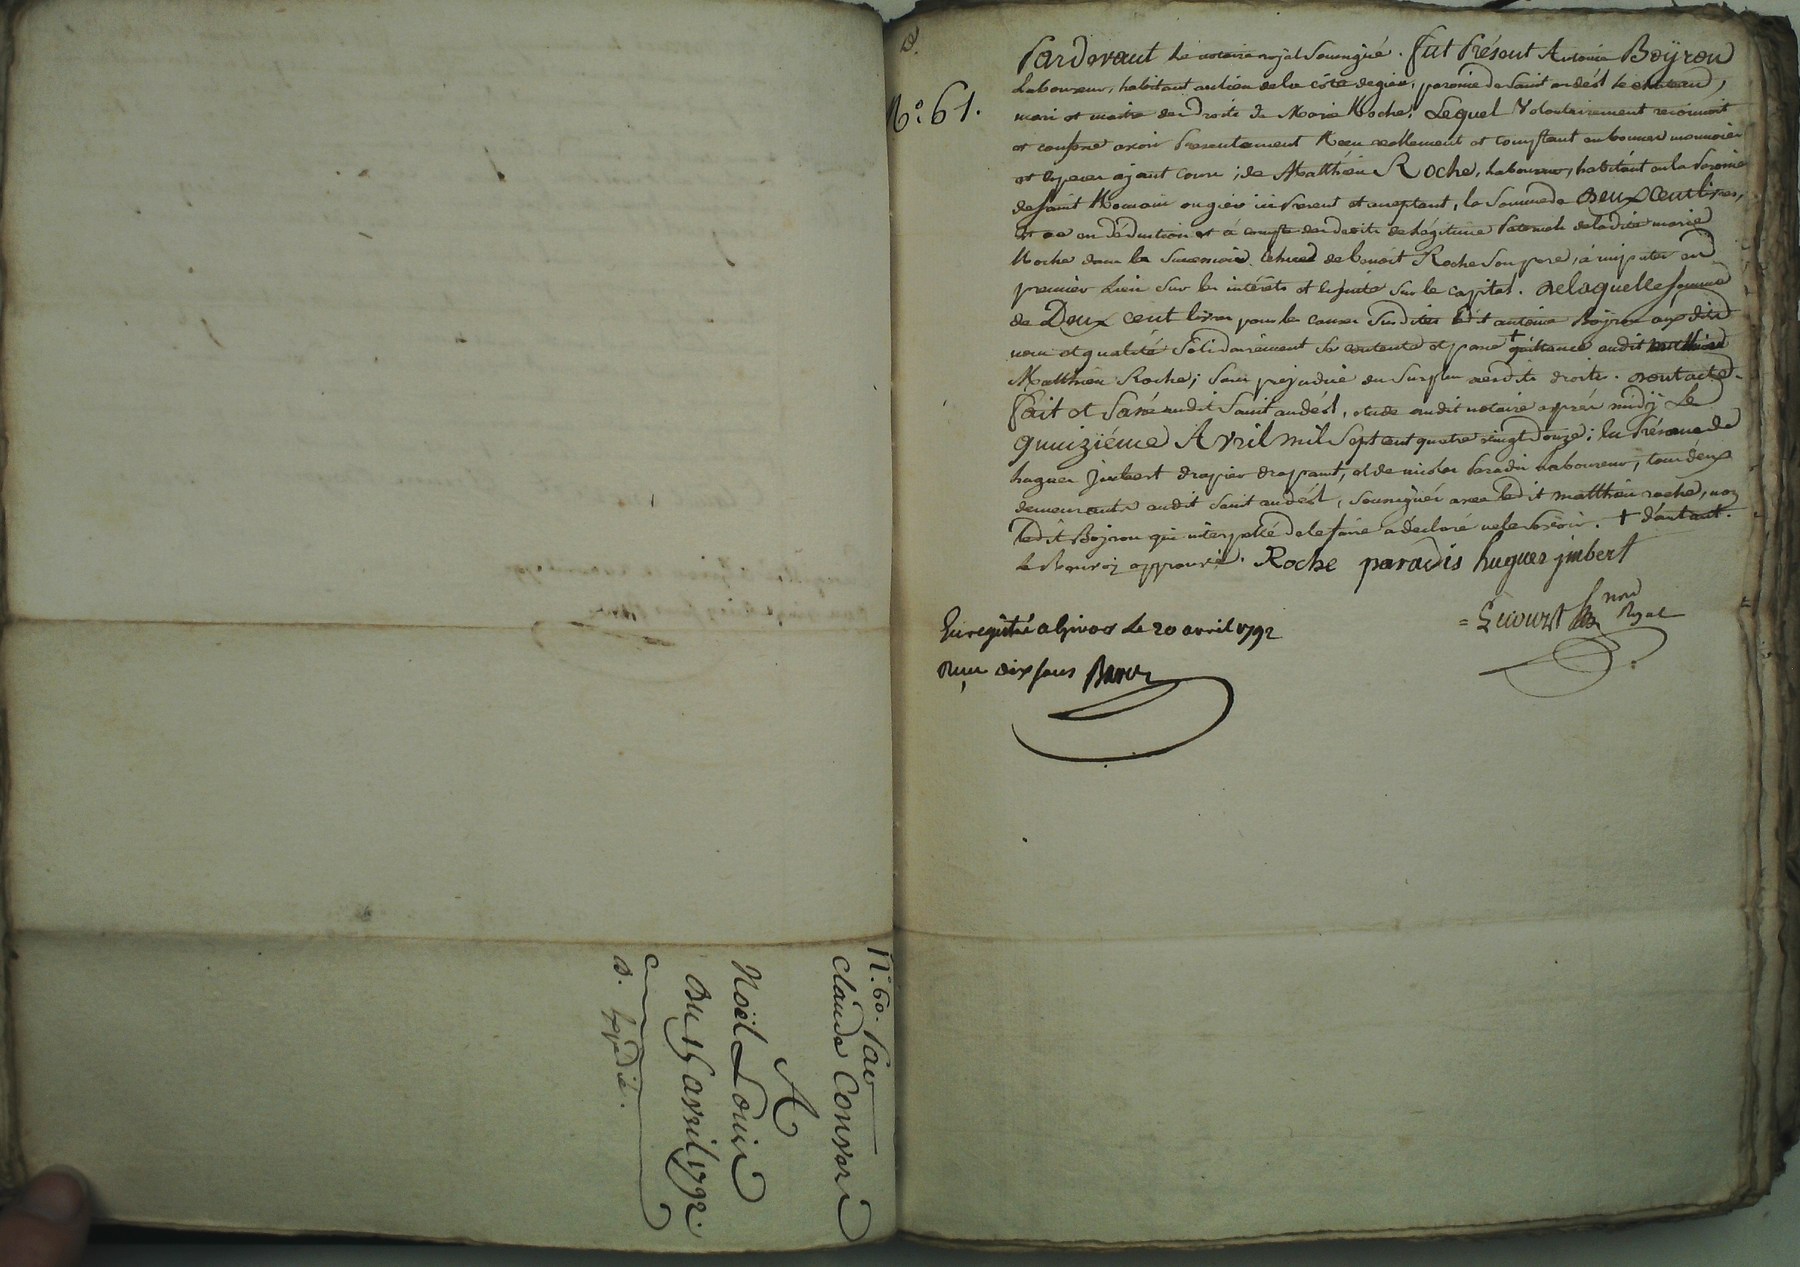 N.° 60. Pac
Claude Convers
A
Noël Louis
Du 15 avril 1792.
D. Expédié.
D.
N.° 61.
Pardevant Le notaire royal Soussigné. fut Présent Antoine Boÿron
Laboureur, habitant au lieu de la côte de gier, paroisse de Saint andéol le chateau,
mari et maitre des Droits de Marie Roche; Lequel Volontairement reconnoit
et confesse avoir Presentement Reçu reellement et comptant en bonnes monnoies
et especes ayant cours; de Matthieu Roche, laboureur, habitant en la Paroisse
de Saint Romain en gier ici Present et acceptant, la Somme de Deux cent livres,
et ce en déduction et à compte des droits de légitime Paternels de ladite marie
Roche dans la Succession de benoit Roche Son pere, à imputer en
premier Lieu Sur les intérêts et ensuite Sur le capital. De laquelle Somme
de Deux cent livres pour les causes Susdites ledit antoine Boÿron auxdits
nom et qualité Solidairement Se contente et passe + quittance audit
Matthieu Roche; Sans préjudice du Surplus desdits droits. Dont acte.
fait et Passé audit Saint andéol, etude dudit notaire après midÿ Le
quinziéme Avril mil Sept cent quatre vingt Douze; En Présence de
hugues Jmbert drapier drapant, et de nicolas Paradis Laboureur, tous deux
demeurants audit Saint andéol, Soussignés avec ledit matthieu roche, non
ledit Boÿron qui interpellé de le faire a declaré ne le Savoir. + d'autant.
Le Renvoi approuvé. Roche paradis hugues jmbert
Royal
Enregistré a Givors Le 20 avril 1792
Reçu dix sous